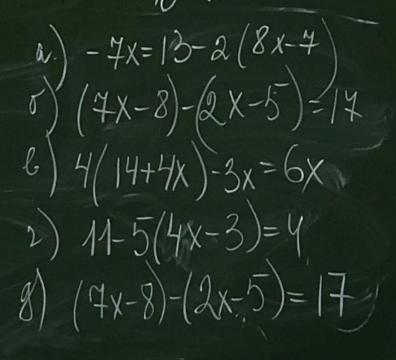 а) -7x=13-2(8x-7)
б) (7x-8)-(2x-5)=17
в) 4(14+4x)-3x=6x
г) 11-5(4x-3)=4
д) (7x-8)-(2x-5)=17